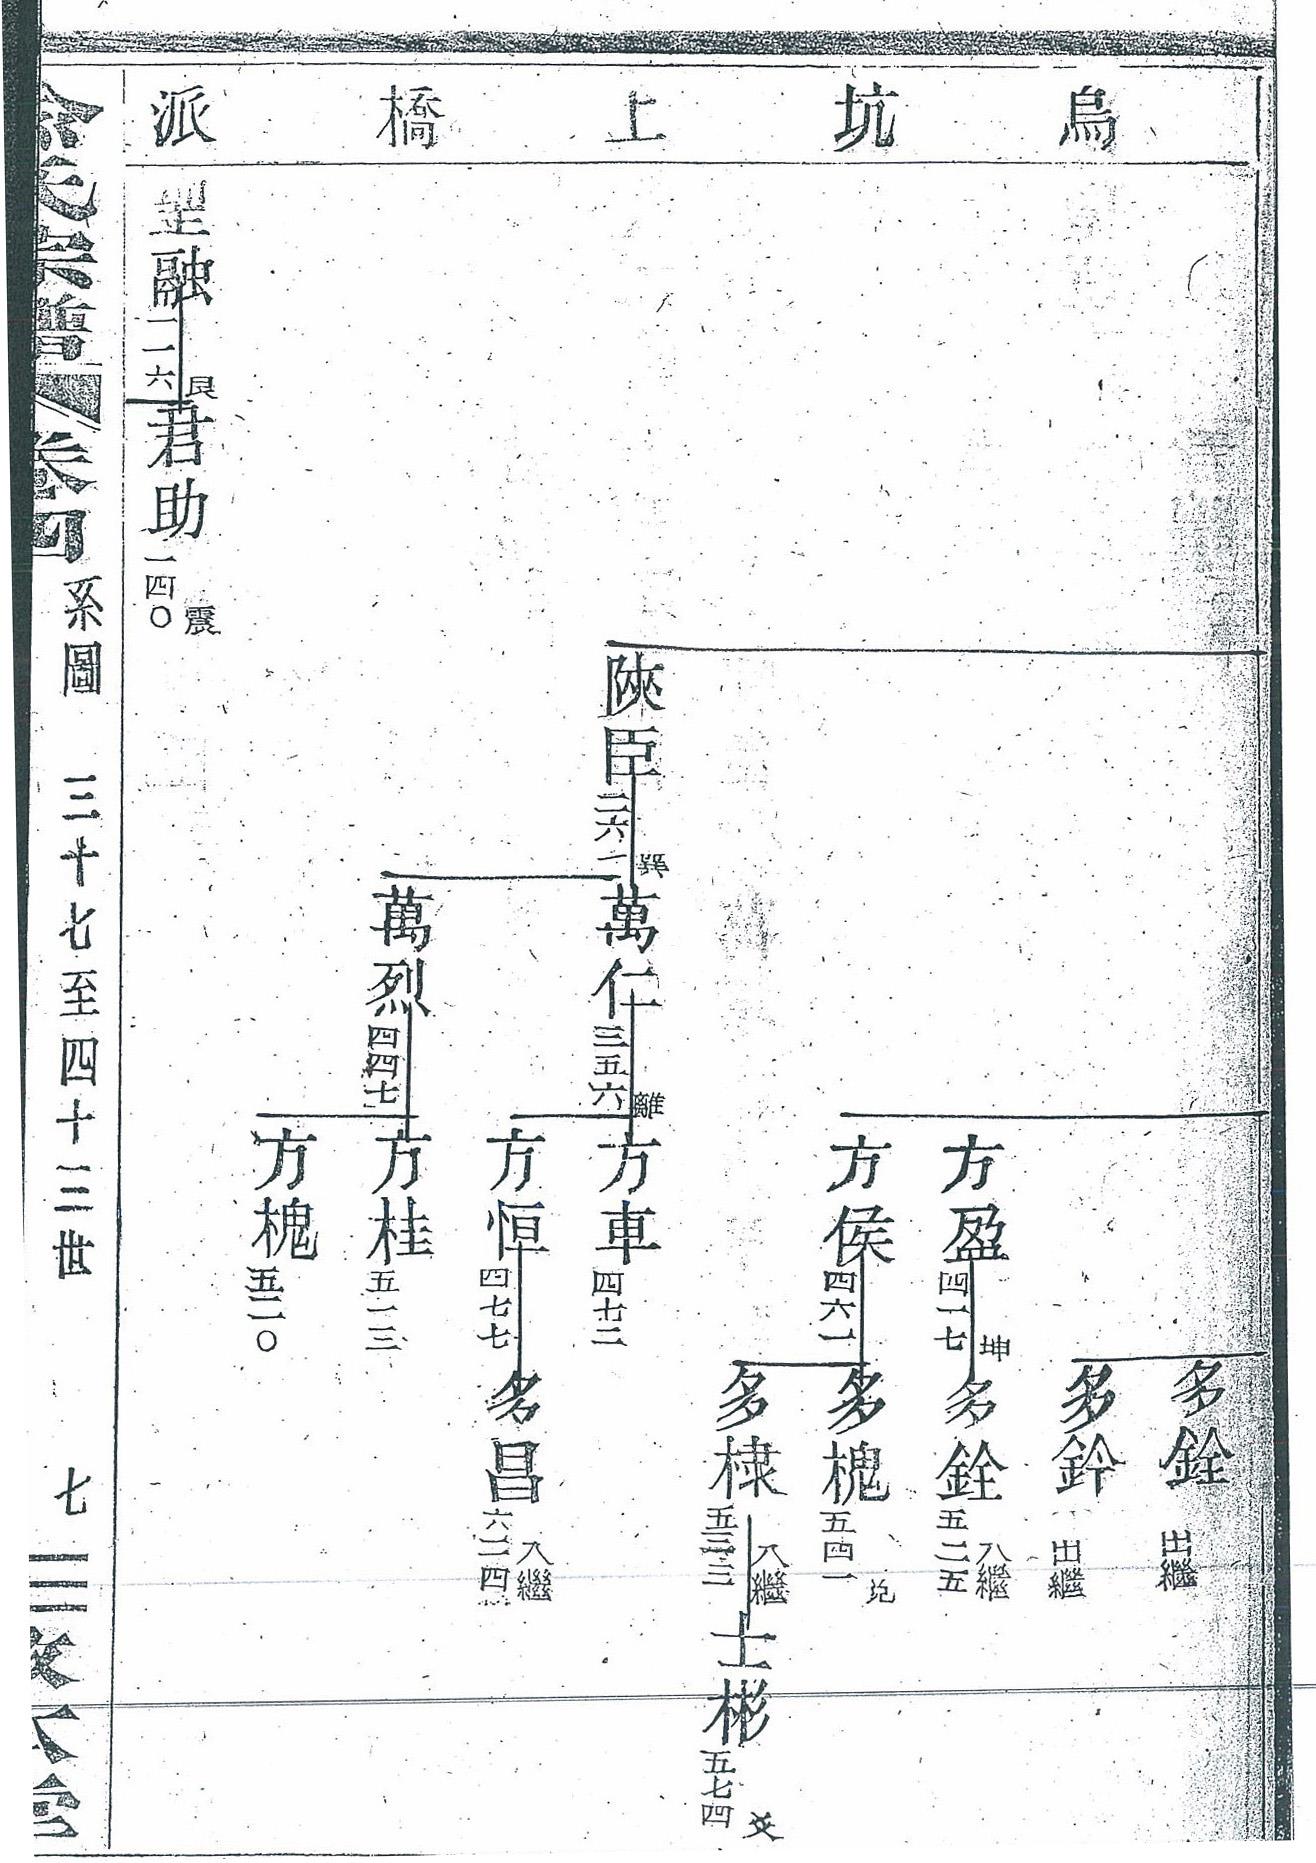 烏坑上橋派
多銓
出繼
多鈴
出繼
方盈
四一七
坤
多銓
五二五
入繼
方侯
四六一
多槐
五四一
多棣
五三三
入繼
士彬
五七四
陝臣
二六一
巽
萬仁
三五六
離
方車
四七二
方恒
四七七
多昌
六二四
入繼
萬烈
四四七
方桂
五一三
方槐
五二〇
融
一一六
艮
君助
一四〇
震
余氏宗譜
卷四
系圖
三十七至四十三世
七